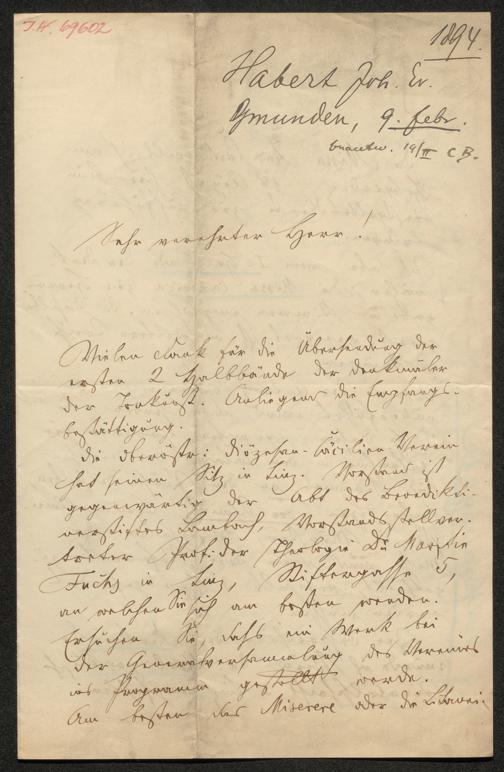 I.N. 69602
1894.
Habert Joh. Ev.
Gmunden, 9. febr.
beantw. 19/II C.B.
Sehr verehrter Herr!
Vielen Dank für die Übersendung der
ersten 2 Halbbände der Denkmäler
der Tonkunst. Anliegend die Empfangs-
bestättigung.
Die oberöstr: Diözesan-Cäcilien-Verein
hat seinen Sitz in Linz. Vorstand ist
gegenwärtig der Abt des Benedikti-
nerstiftes Lambach, Vorstandsstellver-
treter Prof. der Theologie Dr Martin
Fuchs in Linz, Stiftergasse 5,
an welchen Sie sich am besten wenden.
Ersuchen Sie, daß ein Werk bei
der Generalversammlung des Vereines
ins Programm gestellt werde.
Am besten das Miserere oder die Litanei